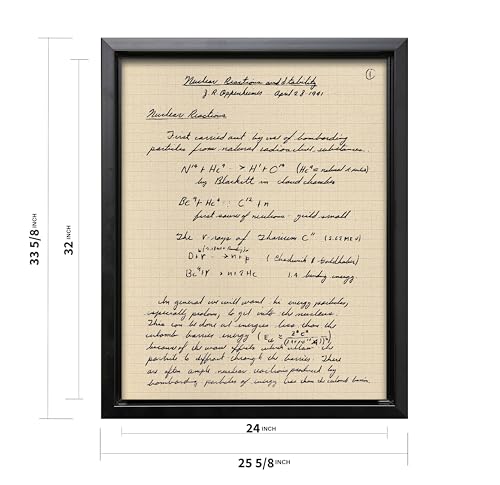 ①
Nuclear Reactions and Stability
J. R. Oppenheimer April 28 - 1941
Nuclear Reactions
First carried out by use of bombarding
particles from natural radioactive substances.
N¹⁴ + He⁴ → H¹ + O¹⁷ (He⁴ = natural α rules)
by Blackett in cloud chamber
Be⁹ + He⁴ : C¹² + n
first source of neutrons - yield small
The γ rays of Thorium C" (2.62 MeV)
D + γ → n + p (Chadwick & Goldhaber)
Be⁹ + γ → n + 2 He 1.4 binding energy
In general we will want hi energy particles,
especially protons, to get into the nucleus.
This can be done at energies less than the
coulomb barrier energy
because of the wave effects which allow the
particle to diffract through the barrier. There
are often ample nuclear reactions produced by
bombarding particles of energy less than the coulomb barrier.
33 5/8 INCH
32 INCH
24 INCH
25 5/8 INCH